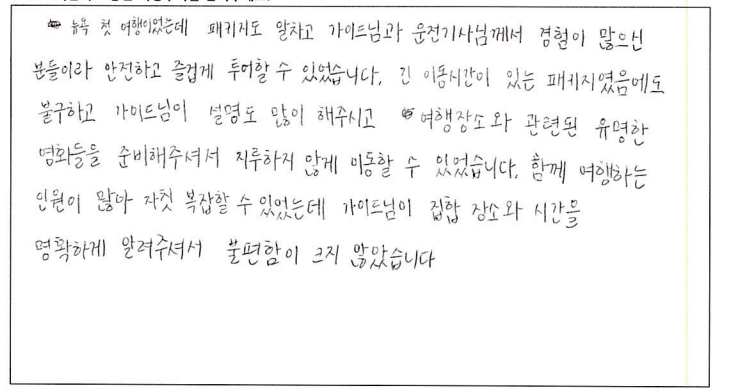 뉴욕 첫 여행이었는데 패키지도 알차고 가이드님과 운전기사님께서 경험이 많으신
분들이라 안전하고 즐겁게 투어할 수 있었습니다. 긴 이동시간이 있는 패키지였음에도
불구하고 가이드님이 설명도 많이 해주시고 여행장소와 관련된 유명한
영화들을 준비해주셔서 지루하지 않게 이동할 수 있었습니다. 함께 여행하는
인원이 많아 자칫 복잡할 수 있었는데 가이드님이 집합 장소와 시간을
명확하게 알려주셔서 불편함이 크지 않았습니다